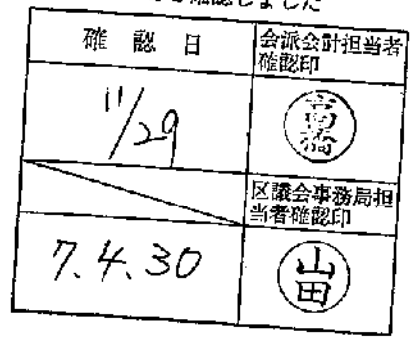 確認しました
確認日
会派会計担当者
確認印
11/29
高橋
区議会事務局担
当者確認印
7.4.30
山田